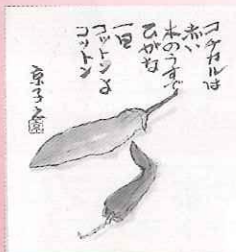 コチカルは
赤い
木のうすで
ひがな
一日
コットンよ
コットン
京子